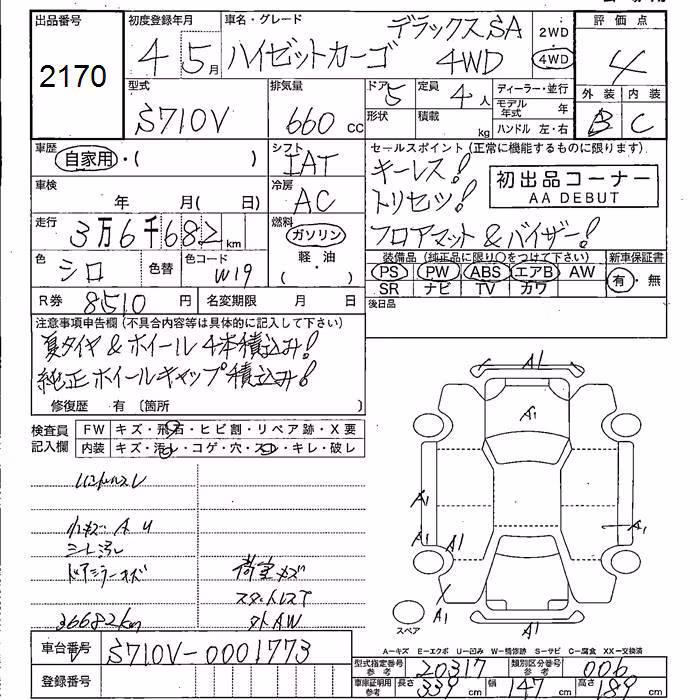 出品番号
2170
初度登録年月
4 5月
車名・グレード
デラックスSA
ハイゼットカーゴ 4WD
2WD
4WD
評価点
4
型式
S710V
排気量
660 cc
ドア
5
定員
4人
形状
積載
kg
ディーラー・並行
モデル年式 年
ハンドル 左・右
外装 内装
B C
車歴
自家用・( )
シフト
IAT
セールスポイント (正常に機能するものに限ります)
キーレス!
トリセツ!
フロアマット&バイザー!
初出品コーナー
AA DEBUT
車検
年 月( 日)
冷房
AC
走行
3万6千682km
燃料
ガソリン
軽油
( ・ )
色
シロ
色替
色コード
W19
装備品 (純正品に限り○をつけて下さい)
PS PW ABS エアB AW
SR ナビ TV カワ
新車保証書
有・無
R券 8510円
名変期限 月 日
後日品
注意事項申告欄 (不具合内容等は具体的に記入して下さい)
夏タイヤ&ホイール4本積込み!
純正ホイールキャップ積込み!
修復歴 有 〔箇所 〕
検査員記入欄
FW キズ・飛石・ヒビ割・リペア跡・X要
内装 キズ・汚レ・コゲ・穴・スレ・キレ・破レ
A U
シート汚レ
ドアミラーキズ
荷室キズ
スタットレスT
外AW
36682km
A1
A1
A1
A1
A1
A1
A1
A1
スペア
A−キズ E−エクボ U−凹み W−補修跡 S−サビ C−腐食 XX−交換済
車台番号
S710V-0001773
登録番号
型式指定番号 参考
20317
類別区分番号 参考
006
車庫証明用 参考
長さ 339cm 幅 147cm 高さ 189cm